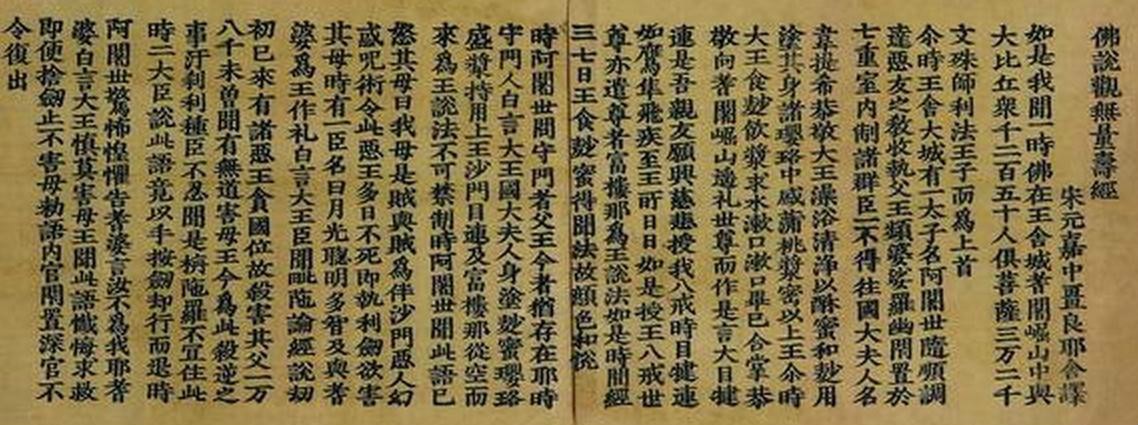 佛說觀無量壽經
宋元嘉中畺良耶舍譯
如是我聞一時佛在王舍城耆闍崛山中與
大比丘衆千二百五十人俱菩薩三万二千
文殊師利法王子而爲上首
尒時王舍大城有一太子名阿闍世隨順調
達惡友之教收執父王頻婆娑羅幽閇置於
七重室內制諸群臣一不得往國大夫人名
韋提希恭敬大王澡浴清淨以酥蜜和麨用
塗其身諸瓔珞中盛蒲桃漿密以上王尒時
大王食麨飲漿求水漱口漱口畢已合掌恭
敬向耆闍崛山遙礼世尊而作是言大目揵
連是吾親友願興慈悲授我八戒時目揵連
如鷹隼飛疾至王所日日如是授王八戒世
尊亦遣尊者富樓那爲王說法如是時閒經
三七日王食麨蜜得聞法故顏色和悅
時阿闍世問守門者父王今者猶存在耶時
守門人白言大王國大夫人身塗麨蜜瓔珞
盛漿持用上王沙門目連及富樓那從空而
來爲王說法不可禁制時阿闍世聞此語已
怒其母曰我母是賊與賊爲伴沙門惡人幻
惑呪術令此惡王多日不死即執利劍欲害
其母時有一臣名曰月光聰明多智及與耆
婆爲王作礼白言大王臣聞毗陁論經說劫
初已來有諸惡王貪國位故殺害其父一万
八千未曾聞有無道害母王今爲此殺逆之
事汙刹利種臣不忍聞是栴陁羅不宜住此
時二大臣說此語竟以手按劍却行而退時
阿闍世驚怖惶懼告耆婆言汝不爲我耶耆
婆白言大王慎莫害母王聞此語懺悔求救
即便捨劍止不害母勑語內官閇置深宮不
令復出